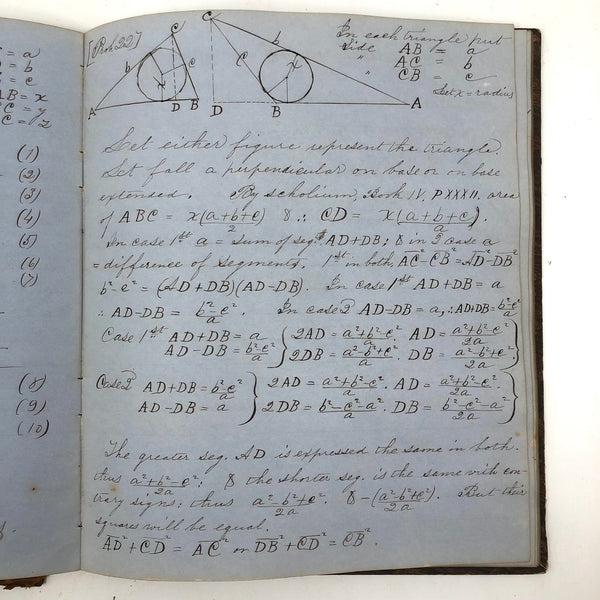 = a
= b
= c
AB = x
C = y
C = z
(1)
(2)
(3)
(4)
(5)
(6)
(7)
(8)
(9)
(10)
[Prob 22]
C
b
c
r
A
D
B
C
b
c
r
D
B
A
In each triangle put
Side AB = a
" AC = b
" CB = c
Let x = radius
Let either figure represent the triangle.
Let fall a perpendicular on base or on base
extended. By scholium, Book IV, P XXXII, area
of ABC = x(a+b+c)/2 & ∴ CD = x(a+b+c)/a.
In case 1st a = sum of seg.s AD+DB; & in 2 case a
= difference of segments. 1st in both, AC²-CB² = AD²-DB²
b²-c² = (AD+DB)(AD-DB). In case 1st AD+DB = a
∴ AD-DB = b²-c²/a. In case 2 AD-DB = a, ∴ AD+DB = b²-c²/a
Case 1st AD+DB = a } 2AD = a²+b²-c²/a. AD = a²+b²-c²/2a
AD-DB = b²-c²/a } 2DB = a²-b²+c²/a. DB = a²-b²+c²/2a
Case 2 AD+DB = b²-c²/a } 2AD = a²+b²-c²/a. AD = a²+b²-c²/2a
AD-DB = a } 2DB = b²-c²-a²/a. DB = b²-c²-a²/2a
The greater seg. AD is expressed the same in both
thus a²+b²-c²/2a; & the shorter seg. is the same with con-
trary signs: thus a²-b²+c²/2a. & -(a²-b²+c²)/2a. But their
squares will be equal.
AD²+CD² = AC² or DB²+CD² = CB².